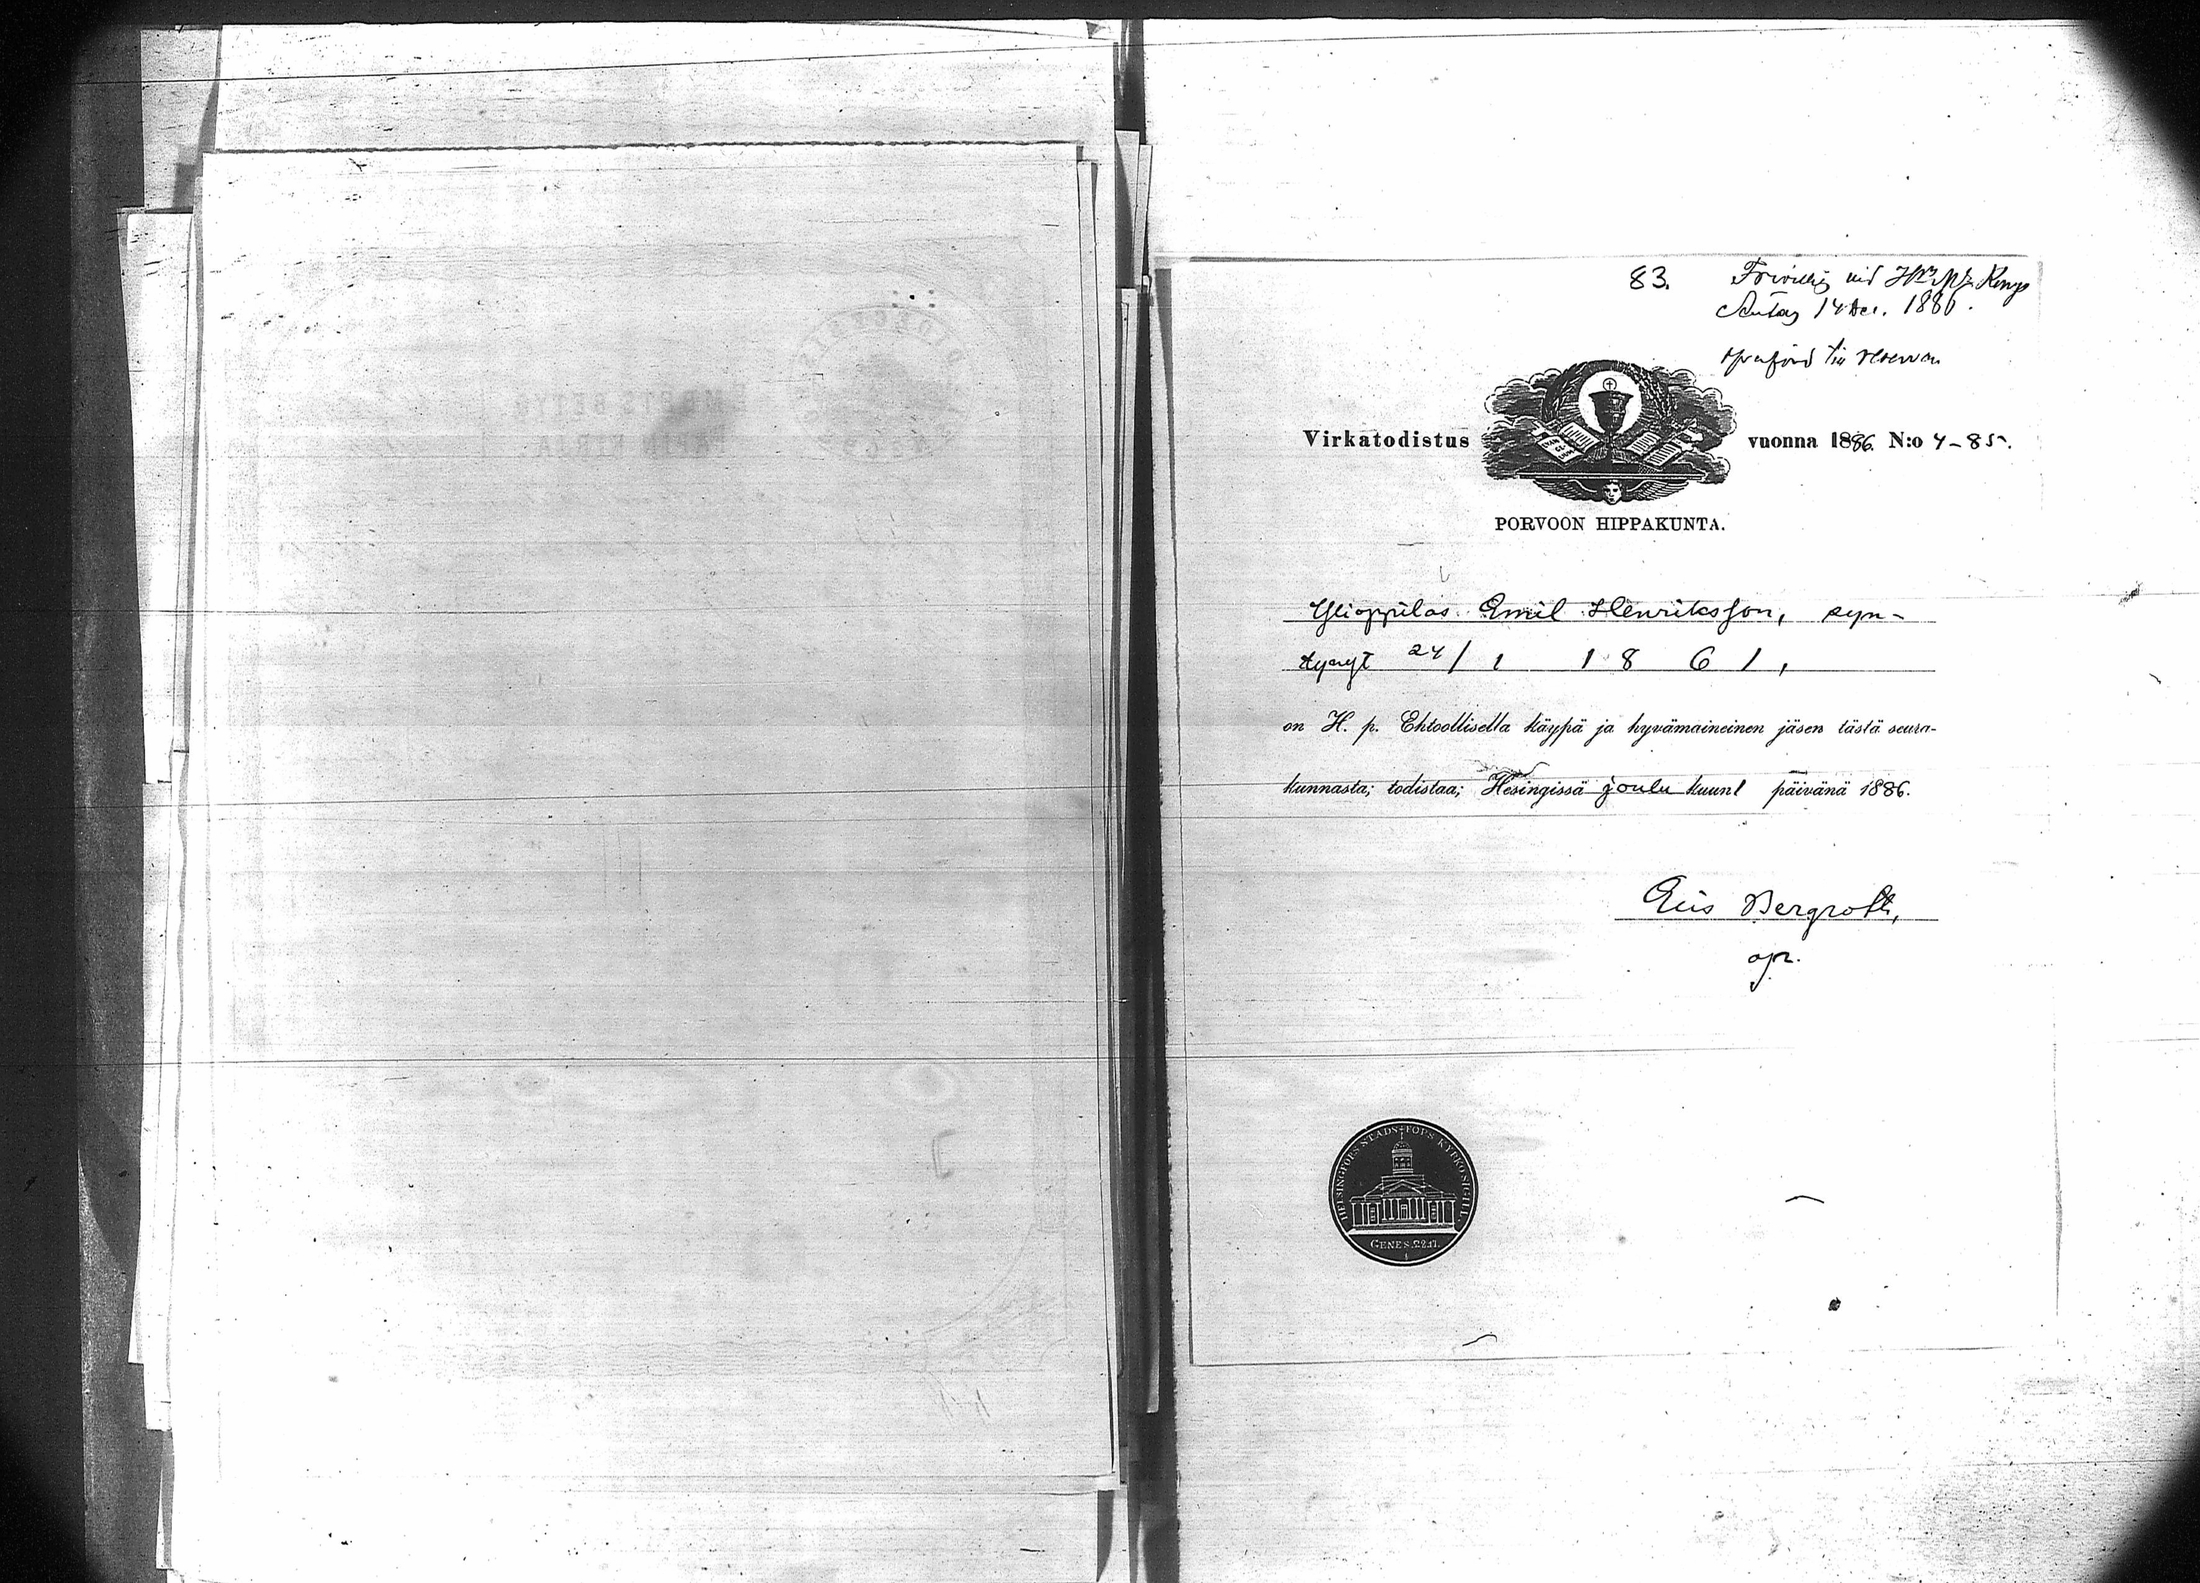 83.
14 Dec. 1886.
Virkatodistus vuonna 1886. N:o 4-85.
PORVOON HIPPAKUNTA.
Ylioppilas Emil Henriksson, syn-
tynyt 24/1 1861,
on H. p. Ehtoollisella käypä ja hyvämaineinen jäsen tästä seura-
kunnasta; todistaa; Hesingissä joulu kuun 1 päivänä 1886.
Elis Bergroth,
apr.
HELSINGFORS STADS
GENES. 22.17.